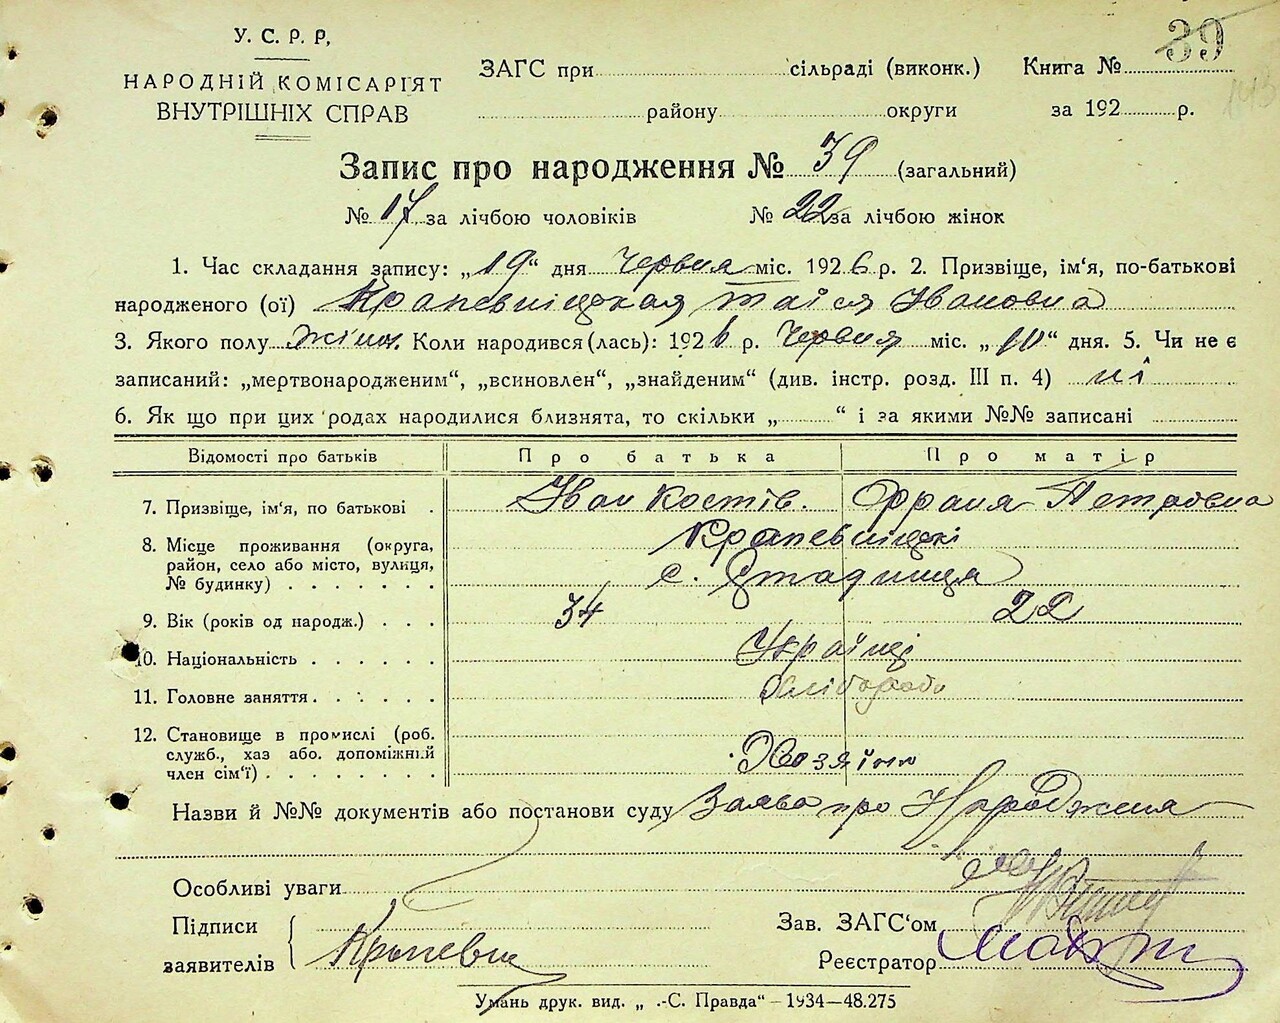 У. С. Р. Р,
НАРОДНІЙ КОМІСАРІЯТ
ВНУТРІШНІХ СПРАВ
ЗАГС при сільраді (виконк.) Книга № 39
району округи за 192 р.
143
Запис про народження № 39 (загальний)
№ 17 за лічбою чоловіків № 22 за лічбою жінок
1. Час складання запису: „19“ дня Червня міс. 1926 р. 2. Призвіще, ім'я, по-батькові
народженого (ої) Крапевніцкая Таїся Ивановна
3. Якого полу жіноч. Коли народився(лась): 1926 р. Червня міс. „10“ дня. 5. Чи не є
записаний: „мертвонародженим“, „всиновлен“, „знайденим“ (див. інстр. розд. III п. 4) ні
6. Як що при цих родах народилися близнята, то скільки „ “ і за якими №№ записані
Відомості про батьків Про батька Про матір
7. Призвіще, ім'я, по батькові . Іван Костів. Франя Петровна
Крапевніцкі
8. Місце проживання (округа,
район, село або місто, вулиця,
№ будинку) . . . . . . . с. Стадниця
9. Вік (років од народж.) . . . 34 22
10. Національність . . . . . . Українці
11. Головне заняття . . . . . . Хлібороби
12. Становище в промислі (роб.
служб., хаз або. допоміжний
член сім'ї) . . . . . . . . Хозяїни
Назви й №№ документів або постанови суду Заява про Народження
Особливі уваги
Підписи
заявителів Крапевни
Зав. ЗАГС'ом
Реєстратор
Умань друк. вид. „ .-С. Правда“ - 1934—48.275